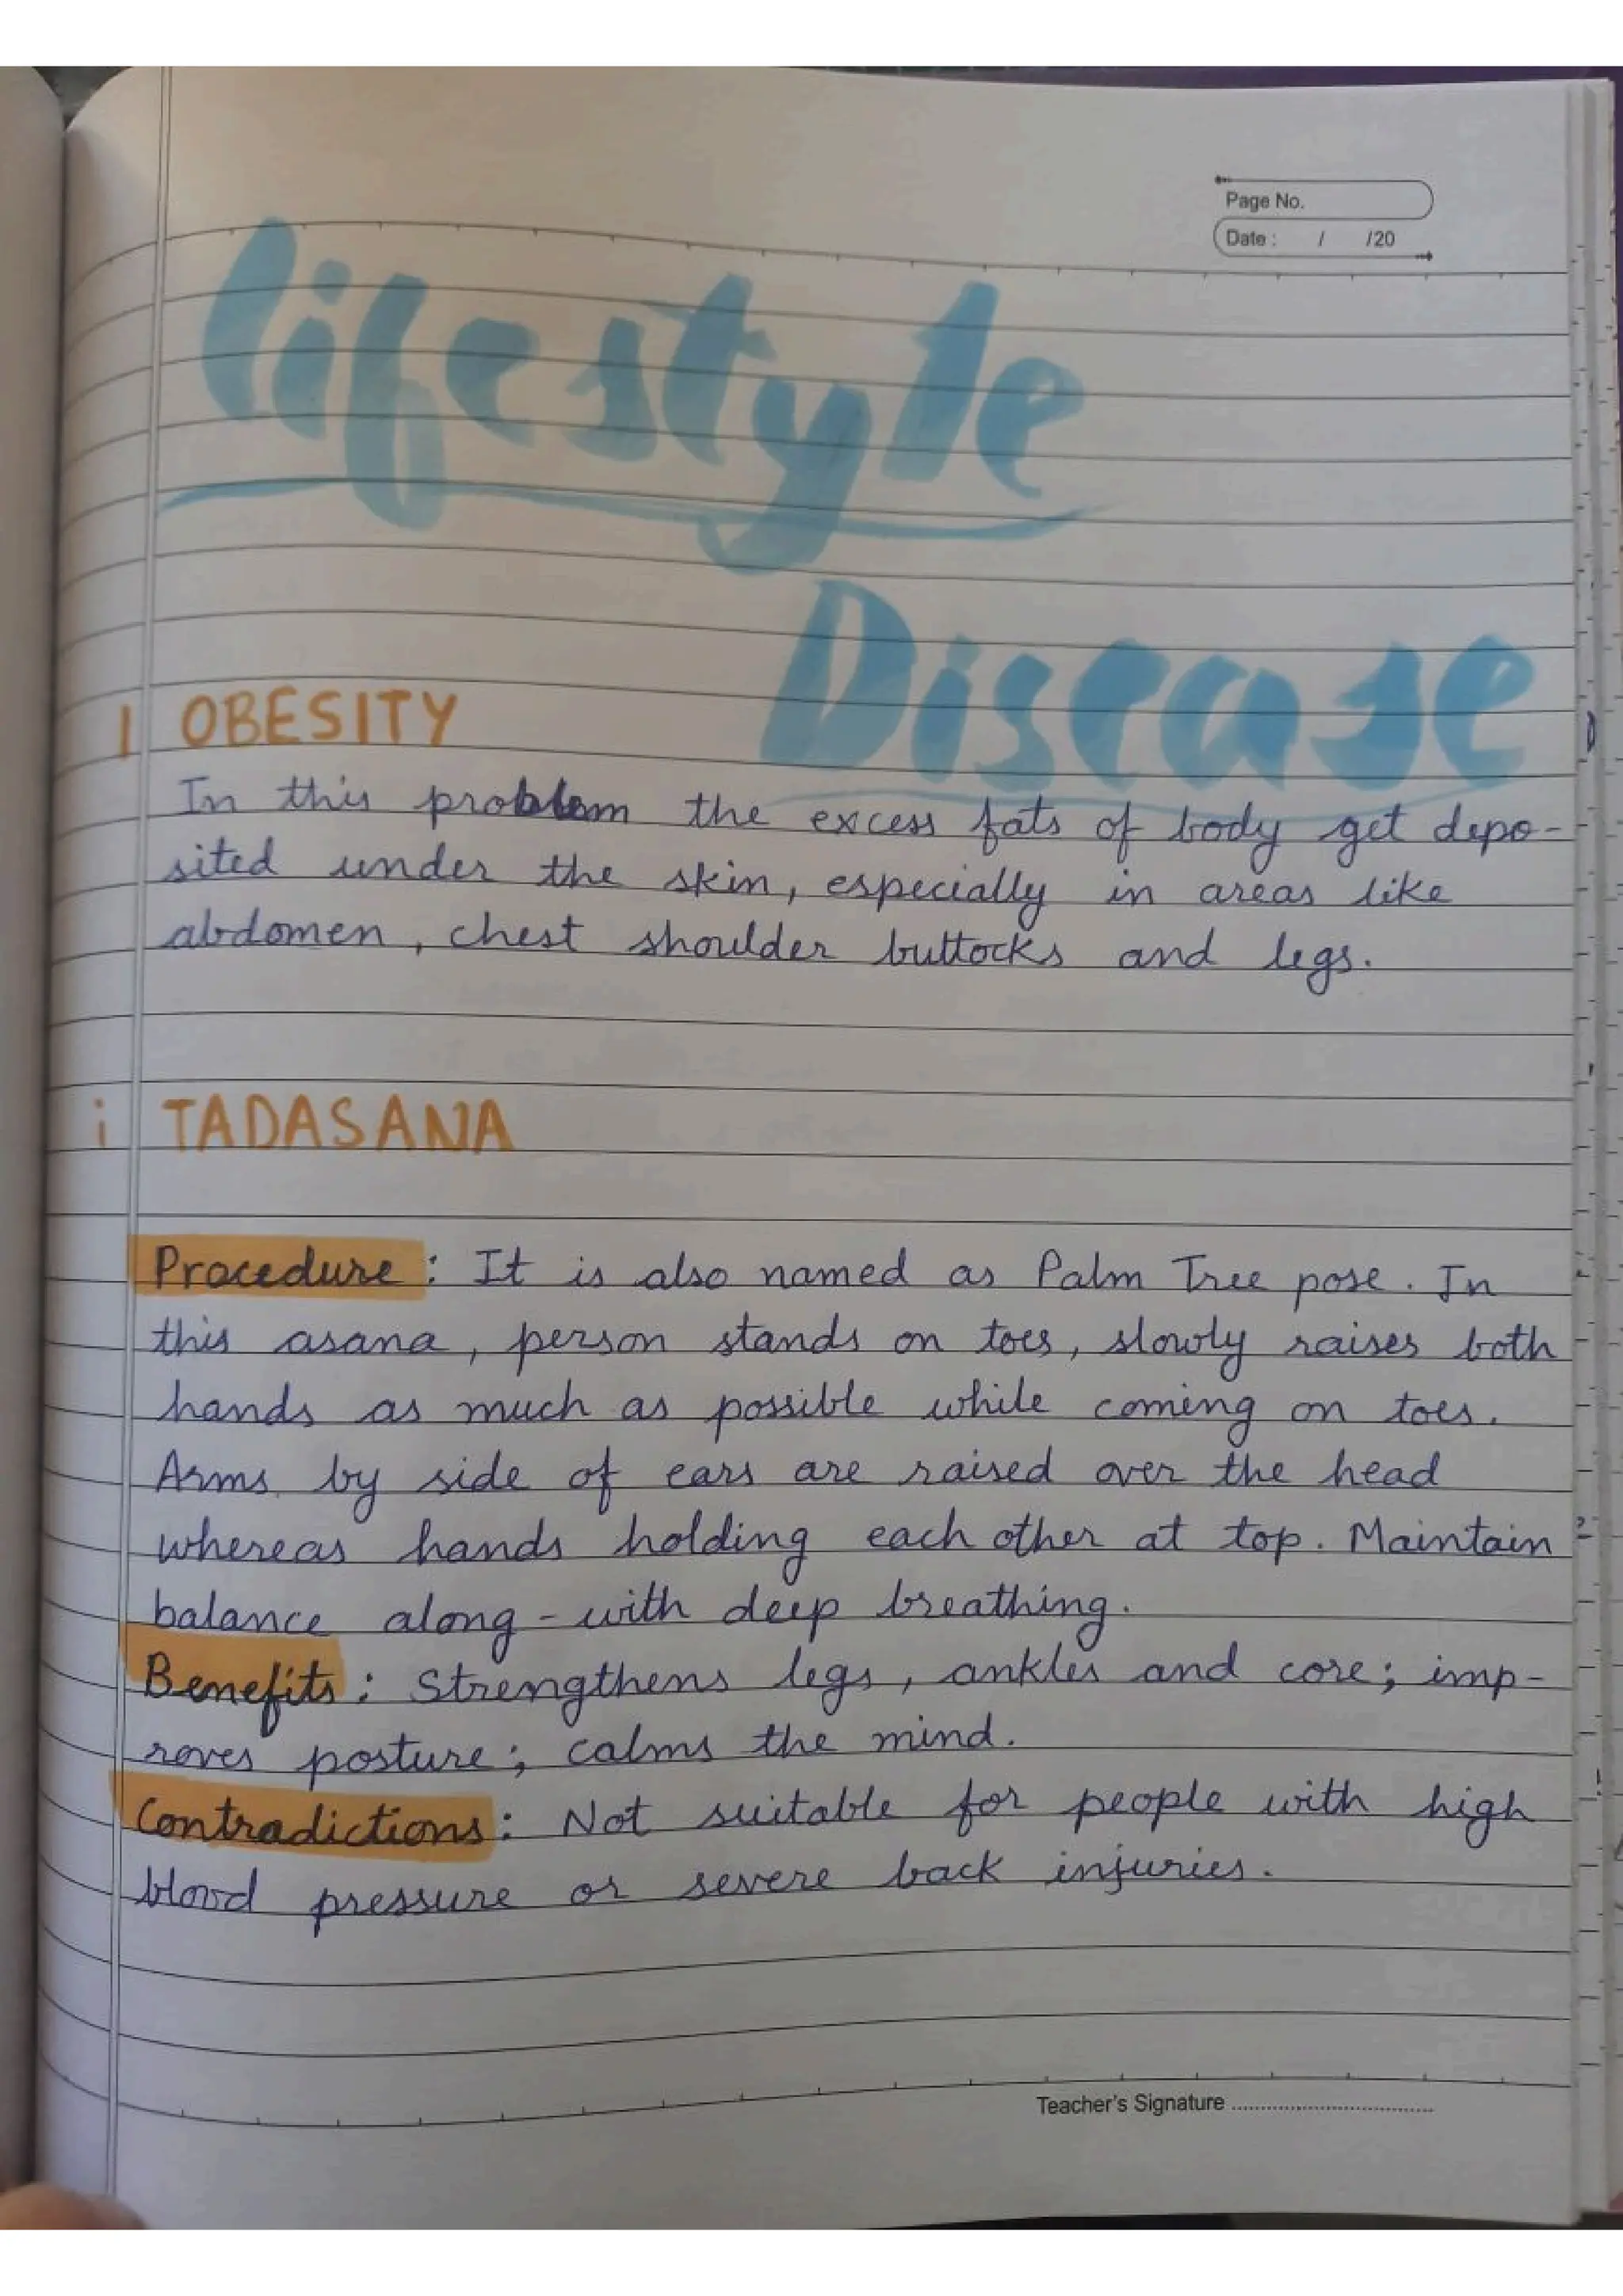 Page No.
Date : / /20
lifestyle
Disease
1 OBESITY
In this problem the excess fats of body get depo-
sited under the skin, especially in areas like
abdomen, chest shoulder buttocks and legs.
i TADASANA
Procedure : It is also named as Palm Tree pose. In
this asana, person stands on toes, slowly raises both
hands as much as possible while coming on toes.
Arms by side of ears are raised over the head
whereas hands holding each other at top. Maintain
balance along-with deep breathing.
Benefits : Strengthens legs, ankles and core; imp-
roves posture; calms the mind.
Contradictions : Not suitable for people with high
blood pressure or severe back injuries.
Teacher's Signature ....................................